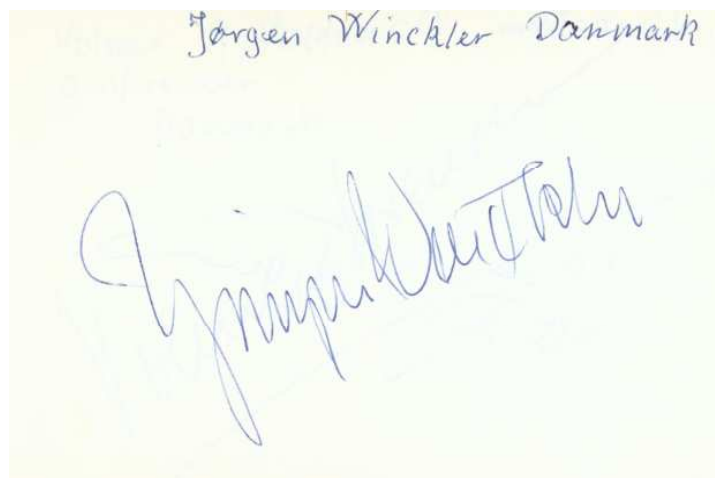 Jørgen Winckler Danmark
Jørgen Winckler